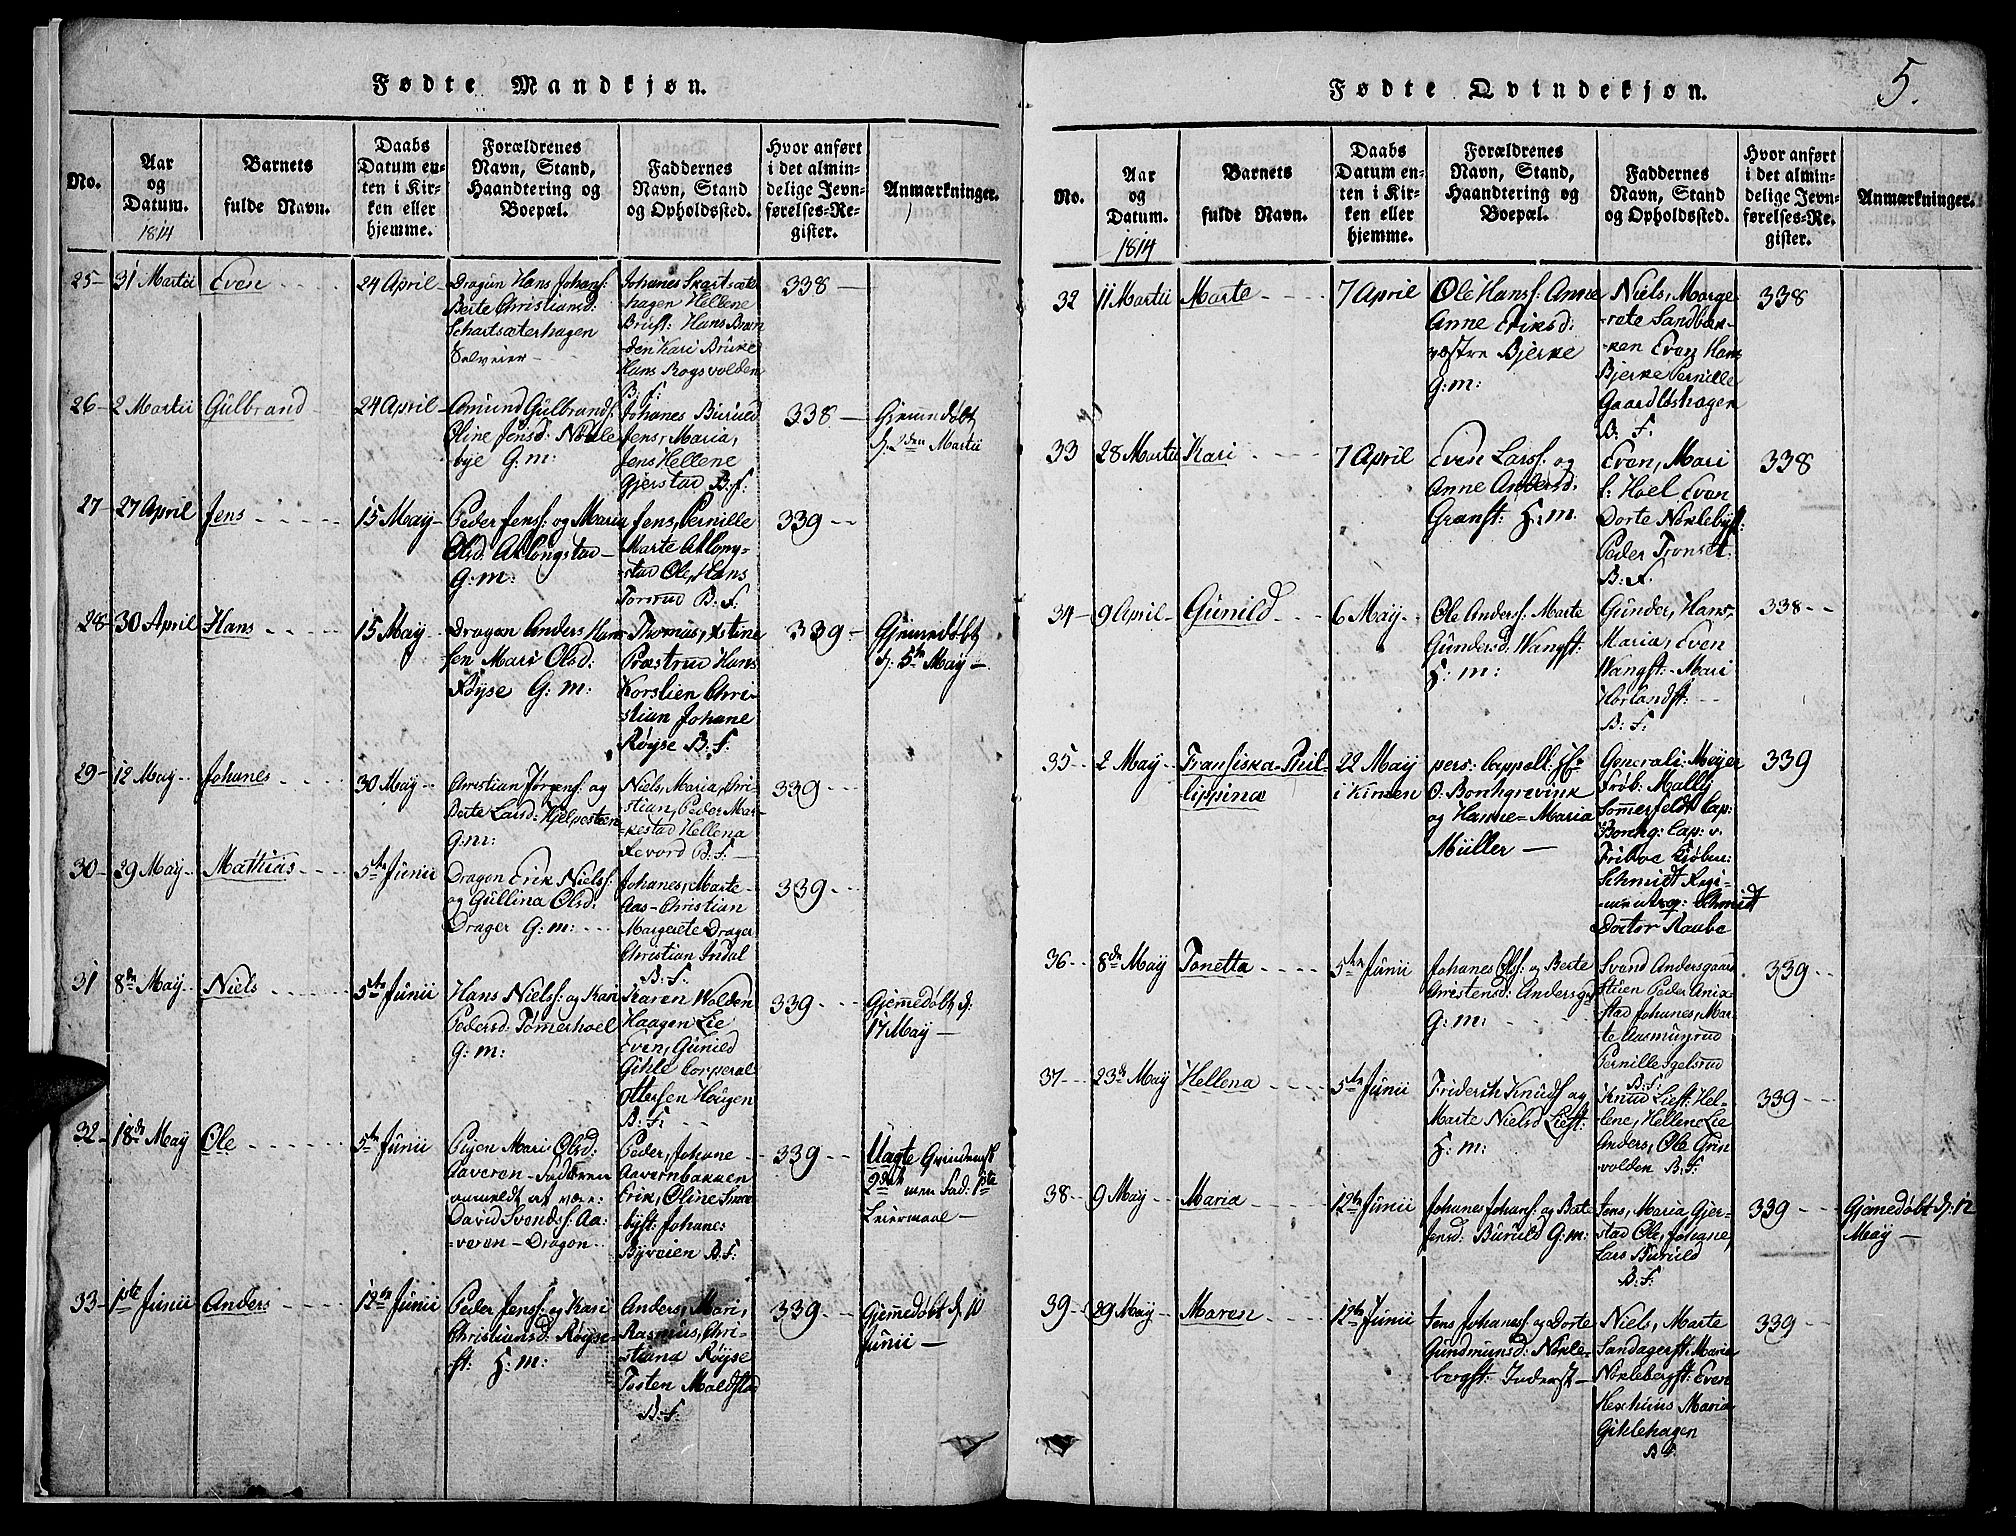 Fødte Mandkjøn.
No.
Aar
og
Datum.
1814
Barnets
fulde Navn.
Daabs
Datum en-
ten i Kir-
ken eller
hjemme.
Forældrenes
Navn, Stand,
Haandtering og
Boepæl.
Faddernes
Navn, Stand
og Opholdssted.
Hvor anført
i det almin-
delige Jevn-
førelses-Re-
gister.
Anmærkninger.
25 31 Martii Even 24 April
Dragun Hans Johans:
Berte Christiansd:
Schartsæterhagen
Selveier
Johanes Skartsæte
hagen Hellene
Brust: Hans Bræn
den Kari Bruke
Hans Rogsvolden
B: F:
338
26 2 Martii Gulbrand 24 April
Amund Gulbrands:
Oline Jensd: Nökle
bye G: m:
Johanes Buruld
Jens, Maria,
Jens Hellene
Gjerstad B: f:
338
Hjemedøbt
d: 2den Martii
27 27 April Jens 15 May
Peder Jens: og Maria
Olsd: Aklongstad
G: m:
Jens, Pernille
Marte Aklony-
stad Ole, Hans
Torsrud B: F:
339
28 30 April Hans 15 May
Dragon Anders Han
sen Mari Olsd:
Röyse G: m:
Thomas, Xstine
Præstrud Hans
Korslien Chri-
stian Johane
Røyse B: F:
339
Hjemedøbt
d: 5te May
29 12 May Johanes 30 May
Christian Jörgens: og
Dorte Larsd: Hjelpesteen
G: m:
Niels, Maria, Chri-
stian, Peder Mar-
kestad Hellena
Revord B: F:
339
30 29 May Mathias 5te Junii
Dragon Erik Niels:
og Gullina Olsd:
Drager G: m:
Johanes, Marte
Aas Christian
Margrete Drager
Christian Indal
B: F:
339
31 8de May Niels 5te Junii
Hans Niels: og Kari
Pedersd: Tømerhoel
G: m:
Karen Wolden
Haagen Lie
Even, Gunild
Gihle Corperal
Ottersen Haugen
B: F:
339
Hjemedøbt d:
17 May
32 18de May Ole 5te Junii
Pigen Mari Olsd:
Aaveren Faderen
anmeldt at være:
David Svends: Aa-
veren Dragon
Peder, Johane
Aavernbakken
Erik, Oline
byst: Johanes
Byveien B: F:
339
Uagte
33 1ste Junii Anders 12te Junii
Peder Jens: og Kari
Christiansd: Røyse-
st: H: m:
Anders, Mari,
Rasmus, Chri-
stiana Røyse
Tosten Maldstad
B: F:
339
Hjemedøbt d: 10
Junii
Fødte Qvindekjøn.
5.
No.
Aar
og
Datum.
1814
Barnets
fulde Navn.
Daabs
Datum en-
ten i Kir-
ken eller
hjemme.
Forældrenes
Navn, Stand,
Haandtering og
Boepæl.
Faddernes
Navn, Stand
og Opholdssted.
Hvor anført
i det almin-
delige Jevn-
førelses-Re-
gister.
Anmærkninger.
32 11 Martii Marte 7 April
Ole Hans: Anne
Anne Eriksd:
væstre Bjerke
G: m:
Niels, Marge
rete Sandbæk-
ken Even Hans
Bjerke Pernille
Gaardløshagen
B: F:
338
33 28 Martii Kari 7 April
Even Lars: og
Anne Andersd:
Granst: H: m:
Even, Mari
Hoel Even
Dorte Nöklebyst:
Peder Tronset
B: F:
338
34 9 April Gunild 6 May
Ole Anders: Marte
Gundersd: Wangst:
H: m:
Gunder, Hans,
Maria, Even
Wangst: Mari
Horlandst:
B: F:
338
35 2 May Fransiska Phil-
lippina
22 May
i Kirken
pers: Cappell: Hr
O: Borchgrevink
og Hanne Maria
Müller
General: Meyer
Frøb: Mally
Sommerfeldt Cap:
Borchg: Cap: v.
Schmidt Regi-
Schmidt
Doctor Raabe
339
36 8de May Tonetta 5te Junii
Johanes Ols: og Berte
Christensd: Andersga
G: m:
Svend Andersgaard
stuen Peder Anix-
stad Johanes, Mar-
te Aasmunrud
Pernille Igelsrud
B: F:
339
37 23de May Hellena 5te Junii
Friderik Knuds: og
Marte Nielsd Liest:
H: m:
Knud Liest: Hel-
lene, Hellene Lie
Anders, Ole Grin
volden B: F:
339
38 9 May Maria 12te Junii
Johanes Johans: og Berte
Jensd: Buruld G: m:
Jens, Maria Gjer-
stad Ole, Johane,
Lars Buruld
B: F:
339
Hjemedøbt d: 12
May
39 29 May Maren 12te Junii
Jens Johanes: og Dorte
Gundmunsd: Nökle-
bergst: Inderst
Niels, Marte
Sandagerst: Maria
Nöklebergst: Even
Hexhuus Maria
Gihlehagen
B F:
339